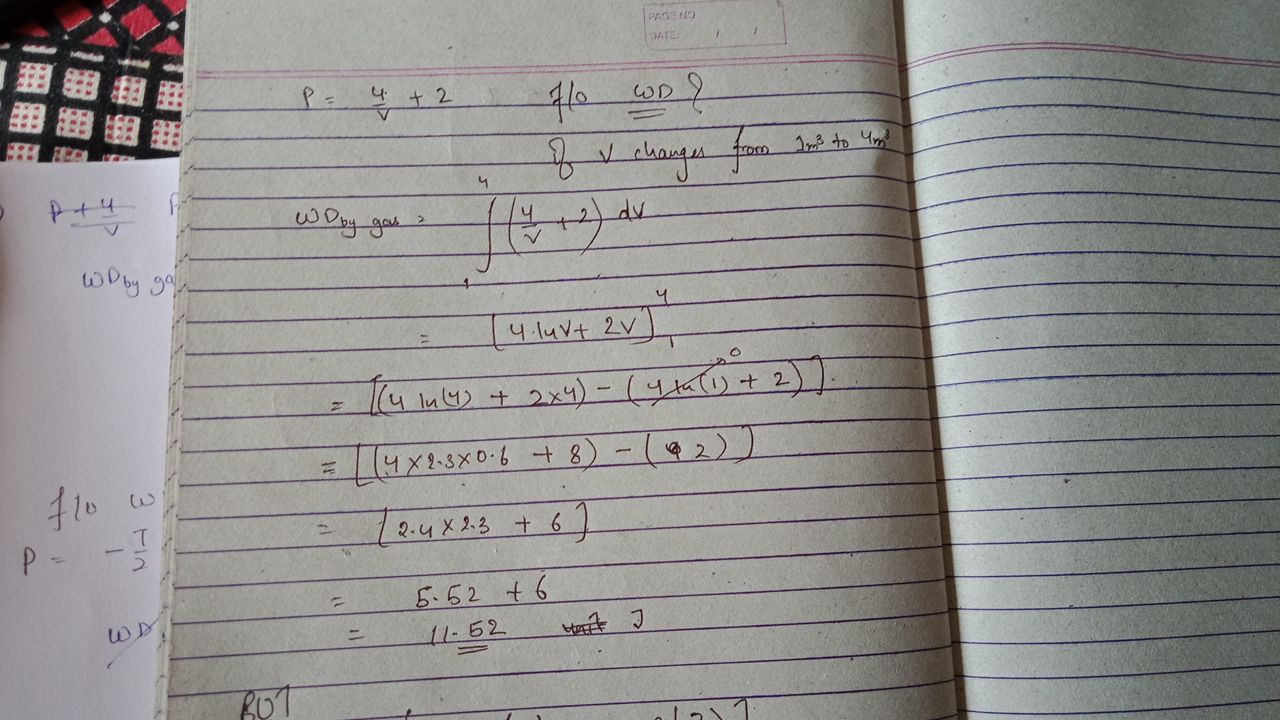 PAGE NO
DATE: / /
P = 4/V + 2 f/o WD ?
If V changes from 1m³ to 4m³
WD by gas = ∫₁⁴ (4/V + 2) dV
= [4·lnV + 2V]₁⁴
= [(4 ln(4) + 2×4) − (4 ln(1) + 2)].
0
= [(4×2.3×0.6 + 8) − (2)]
= [2.4×2.3 + 6]
= 5.52 + 6
= 11.52 J
P + 4/V
WD by ga
f/o W
P = − T/2
WD